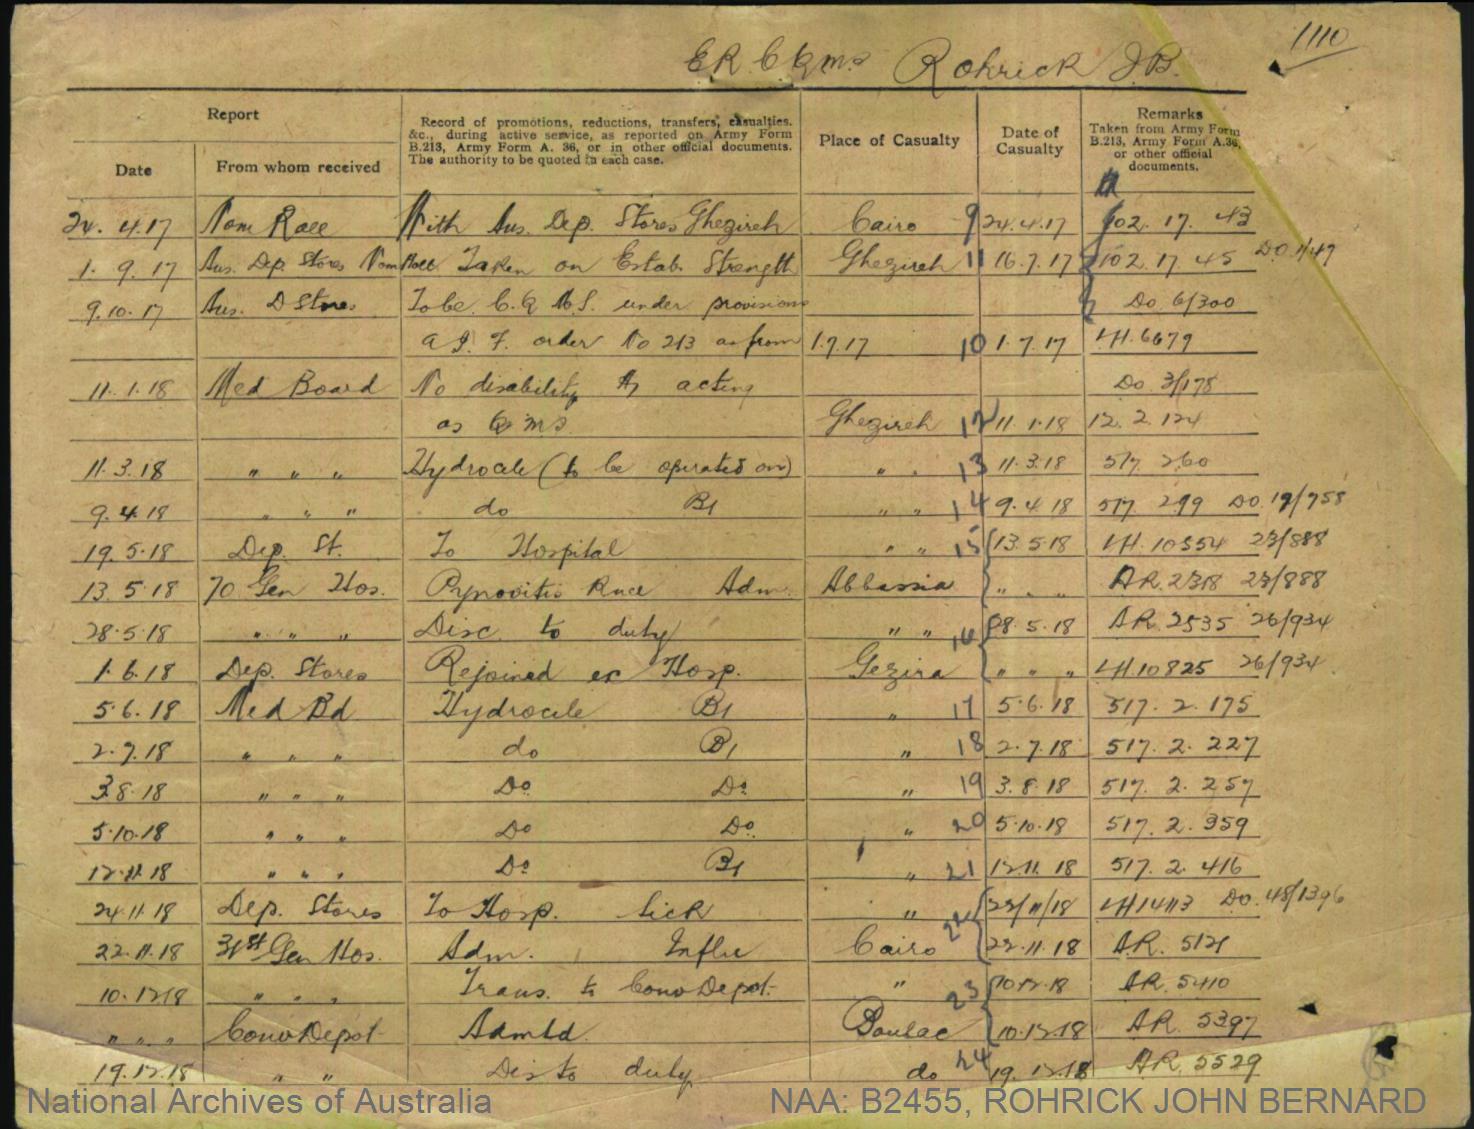 1110
ER CQMS Rohrick J B.
Report
Date
From whom received
Record of promotions, reductions, transfers, casualties, &c., during active service, as reported on Army Form B.213, Army Form A. 36, or in other official documents. The authority to be quoted in each case.
Place of Casualty
Date of Casualty
Remarks
Taken from Army Form B.213, Army Form A.36, or other official documents.
24. 4.17 Nom Roll With Aus. Dep. Stores Ghezireh Cairo 9 24.4.17 102. 17. 43
1. 9. 17 Aus. Dep. Stores Nom Roll Taken on Estab. Strength Ghezireh 11 16.7.17 102. 17. 45 DO. 1/47
9.10.17 Aus. D Stores To be C.Q.M.S. under provisions Do. 6/300
A.I.F. order No 213 as from 1.7.17 10 1.7.17 LH. 6679
11.1.18 Med Board No disability acting Do 3/178
as QMS Ghezireh 12 11.1.18 12. 2. 124
11.3.18 " " " Hydrocele (to be operated on) " " 13 11.3.18 517. 260
9.4.18 " " " do B1 " " 14 9.4.18 517. 299 DO. 19/758
19.5.18 Dep. St. To Hospital " " 15 13.5.18 LH. 10554 23/888
13.5.18 70 Gen Hos. Synovitis Knee Adm. Abbassia " " " AR. 2318 23/888
28.5.18 " " " Disc to duty " " 16 28.5.18 AR. 2535 26/934
1.6.18 Dep. Stores Rejoined ex Hosp. Gezira " " " LH. 10825 26/934
5.6.18 Med Bd Hydrocele B1 " 17 5.6.18 517. 2. 175
2.7.18 " " " do B1 " 18 2.7.18 517. 2. 227
3.8.18 " " " Do Do " 19 3.8.18 517. 2. 257
5.10.18 " " " Do Do " 20 5.10.18 517. 2. 359
12.11.18 " " " Do B1 " 21 12.11.18 517. 2. 416
24.11.18 Dep. Stores To Hosp. Sick " 22 22/11/18 LH 14113 DO. 48/1396
22.11.18 31st Gen Hos. Adm. Influ Cairo 22.11.18 AR. 5121
10.12.18 " " " Trans. to Conv Depot " 23 10.12.18 AR. 5410
" " " Conv Depot Admtd. Boulac 10.12.18 AR. 5397
19.12.18 " " Dis to duty do 24 19.12.18 AR. 5529
National Archives of Australia
NAA: B2455, ROHRICK JOHN BERNARD